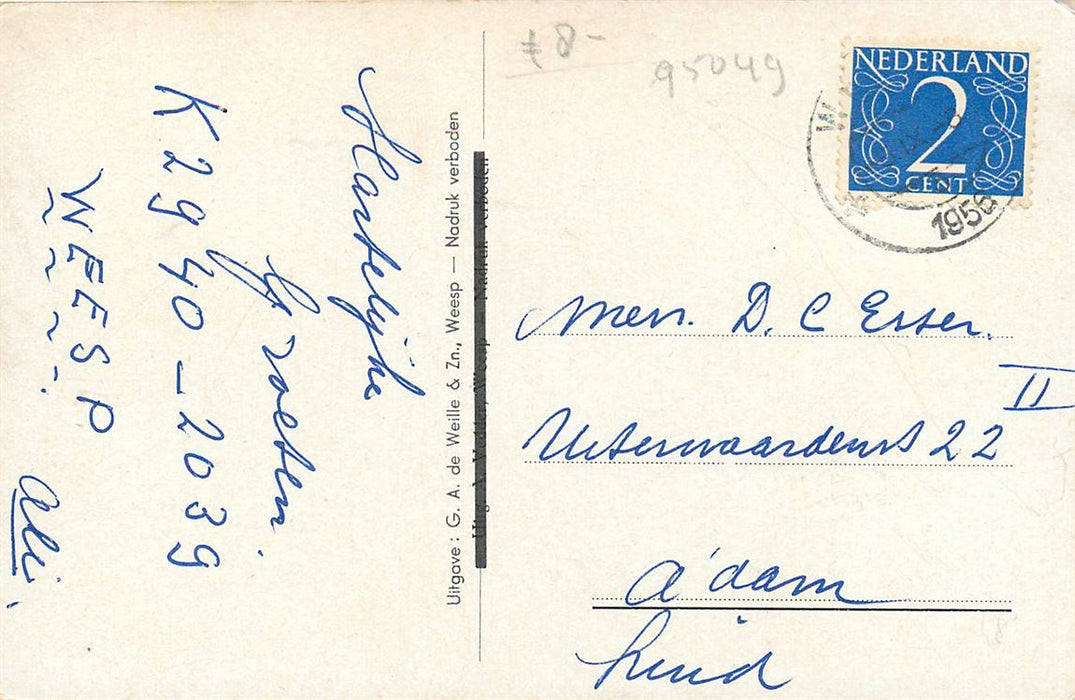 Hartelijke
Groeten.
K 2940-2039
WEESP
Alie.
Uitgave: G. A. de Weille & Zn., Weesp — Nadruk verboden
Nadruk verboden
f 8-
95049
NEDERLAND
2
CENT
1956
Men. D. C Esser.
Uiterwaardenst 22 II
A'dam
Zuid